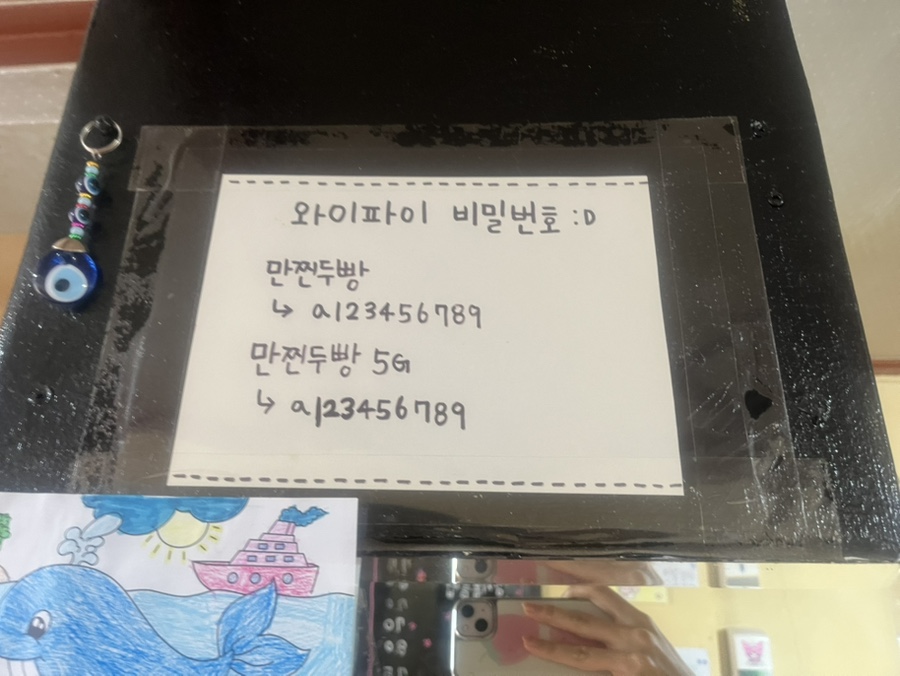 와이파이 비밀번호 :D
만찐두빵
↳ a123456789
만찐두빵 5G
↳ a123456789